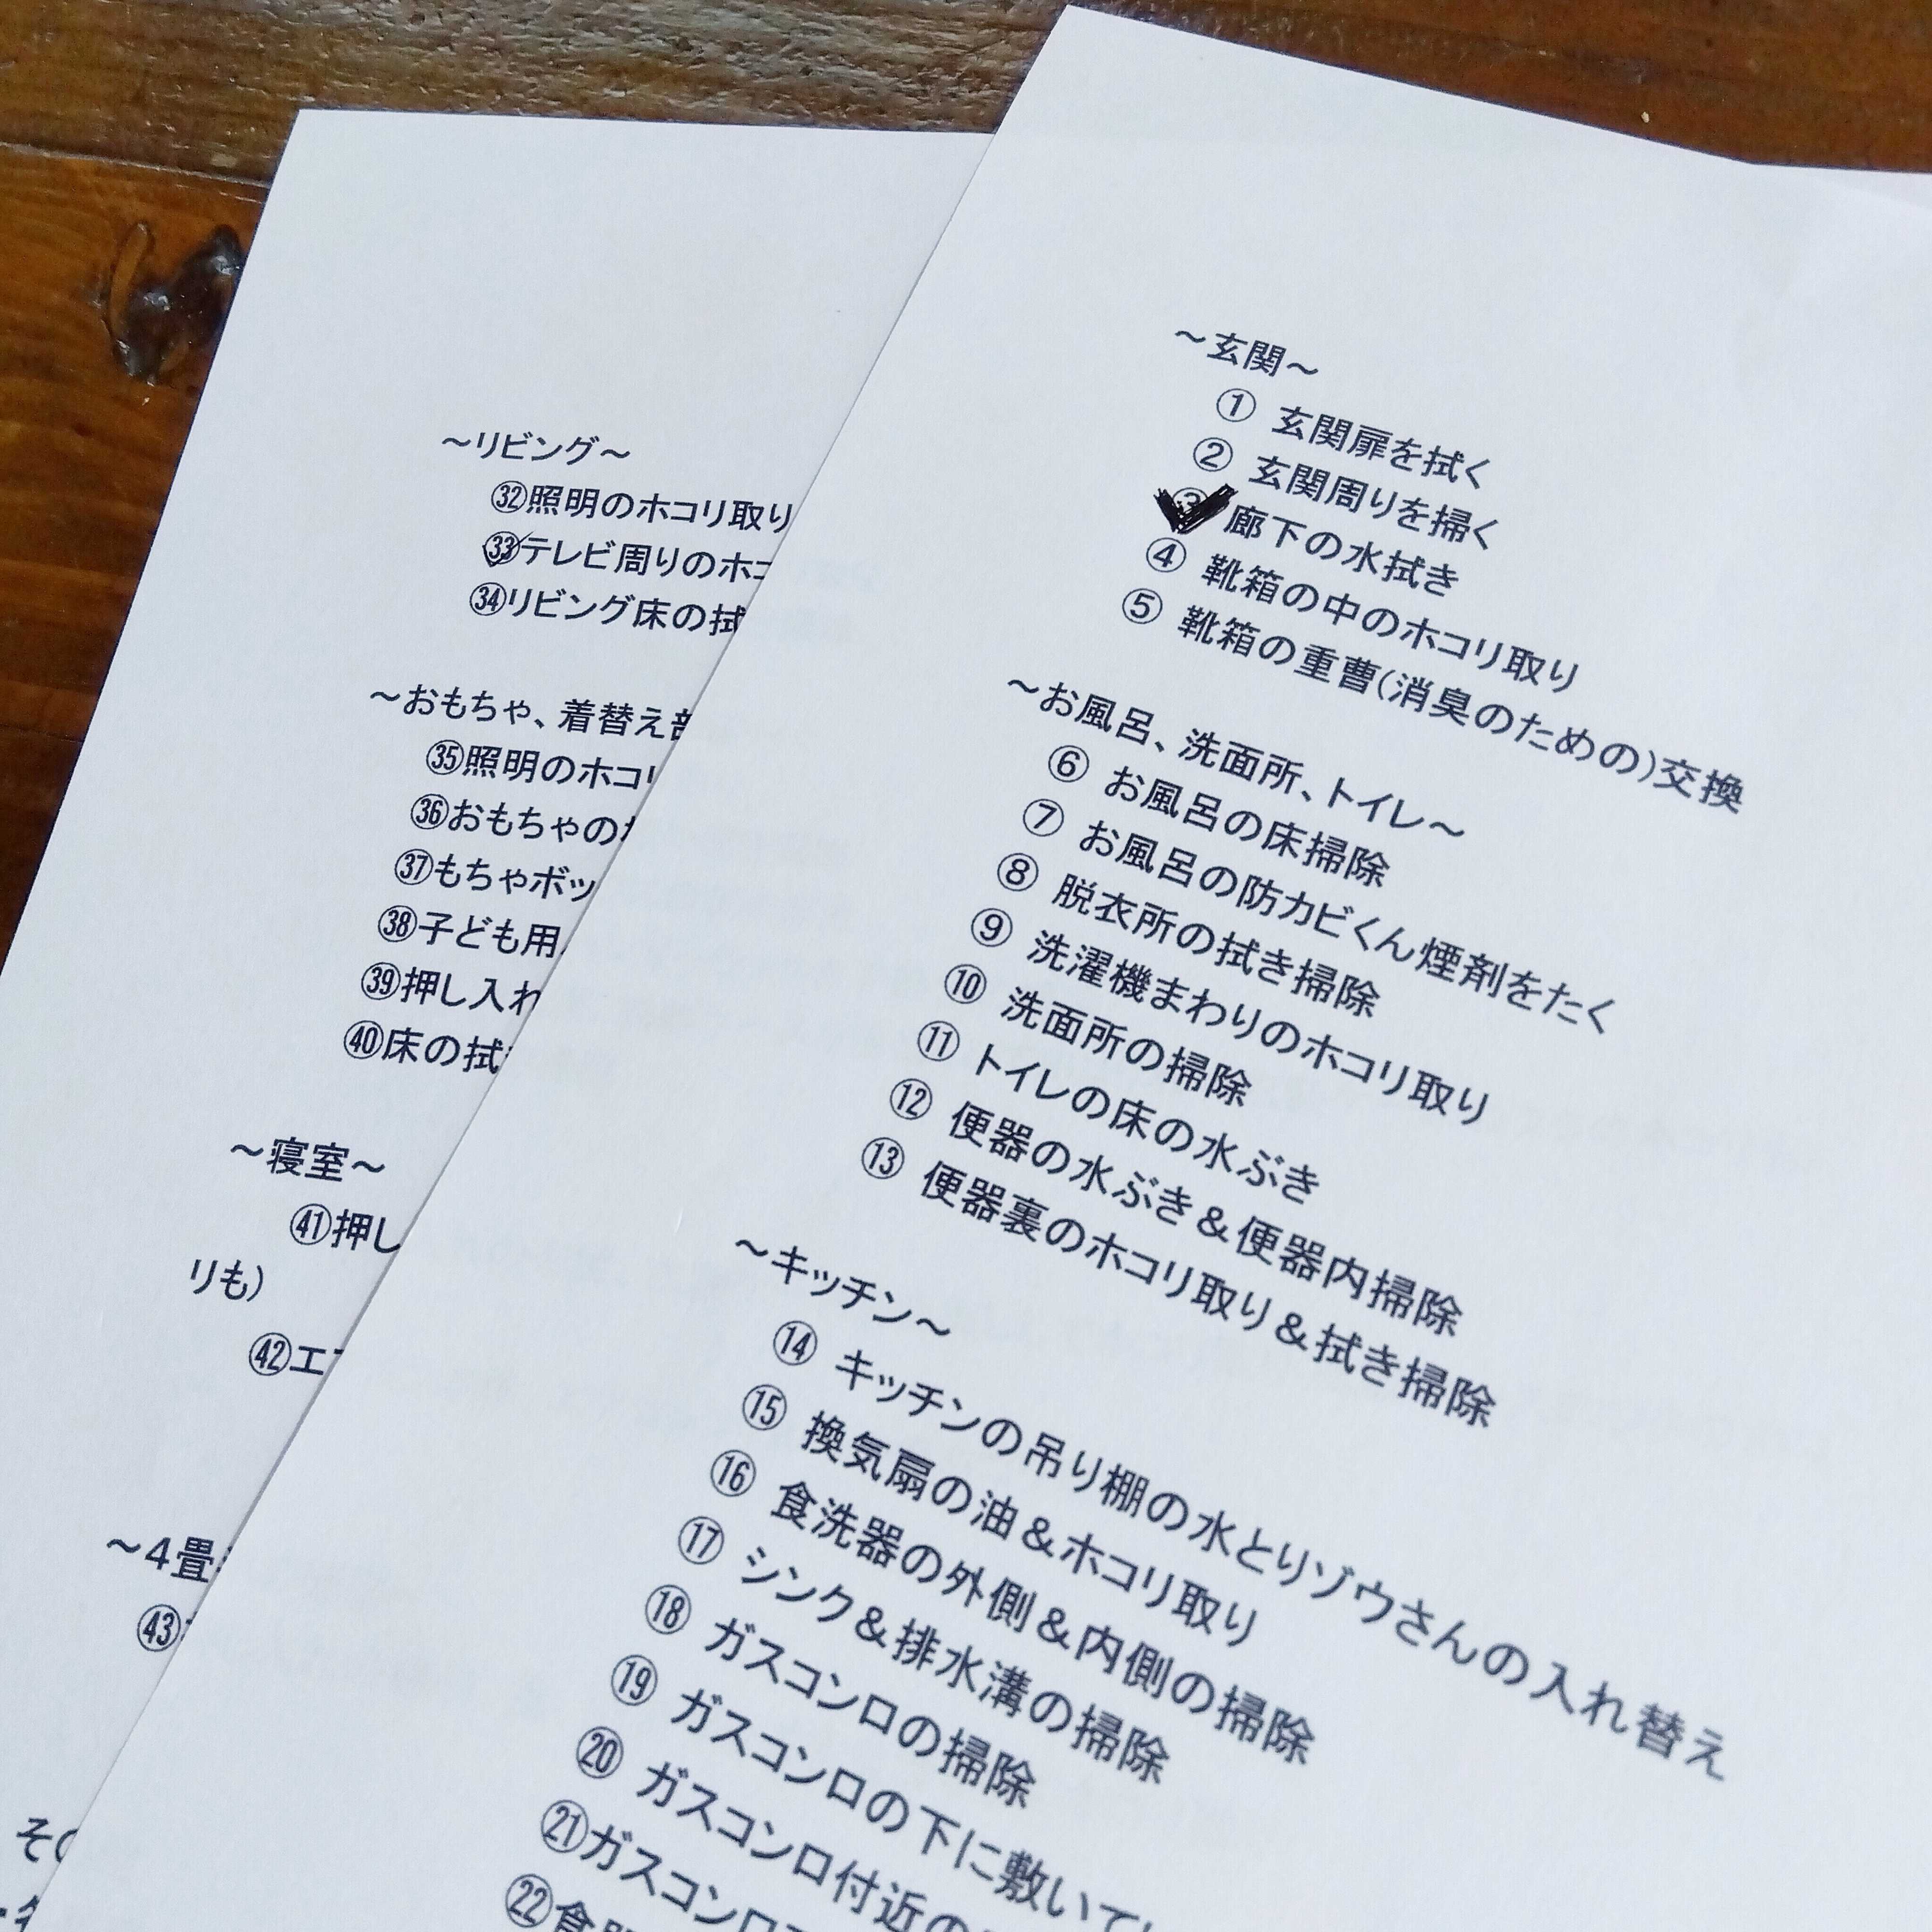 ～玄関～
① 玄関扉を拭く
② 玄関周りを掃く
③ 廊下の水拭き
④ 靴箱の中のホコリ取り
⑤ 靴箱の重曹(消臭のための)交換
～お風呂、洗面所、トイレ～
⑥ お風呂の床掃除
⑦ お風呂の防カビくん煙剤をたく
⑧ 脱衣所の拭き掃除
⑨ 洗濯機まわりのホコリ取り
⑩ 洗面所の掃除
⑪ トイレの床の水ぶき
⑫ 便器の水ぶき＆便器内掃除
⑬ 便器裏のホコリ取り＆拭き掃除
～キッチン～
⑭ キッチンの吊り棚の水とりゾウさんの入れ替え
⑮ 換気扇の油＆ホコリ取り
⑯ 食洗器の外側＆内側の掃除
⑰ シンク＆排水溝の掃除
⑱ ガスコンロの掃除
⑲ ガスコンロの下に敷いて
⑳ ガスコンロ付近の
㉑ガスコンロ
㉒食
～リビング～
㉜照明のホコリ取り
㉝テレビ周りのホコ
㉞リビング床の拭
～おもちゃ、着替え
㉟照明のホコリ
㊱おもちゃの
㊲もちゃボッ
㊳子ども用
㊴押し入れ
㊵床の拭
～寝室～
㊶押し
リも)
㊷エ
～４畳
㊸
そ